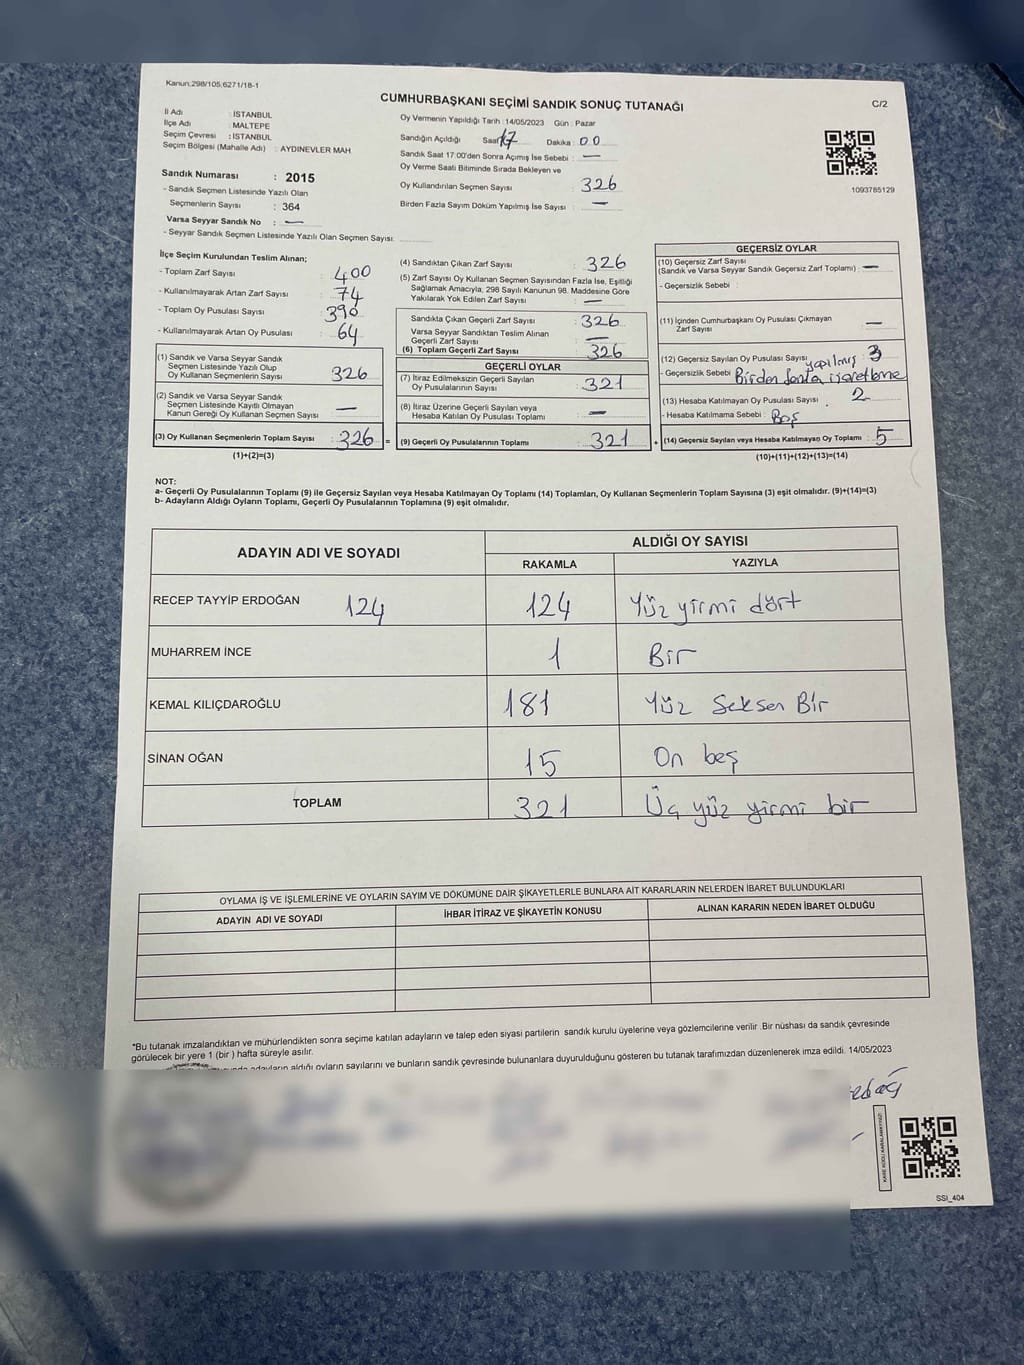 Kanun:298/105;6271/18-1
CUMHURBAŞKANI SEÇİMİ SANDIK SONUÇ TUTANAĞI
C/2
İl Adı : İSTANBUL
İlçe Adı : MALTEPE
Seçim Çevresi : İSTANBUL
Seçim Bölgesi (Mahalle Adı) : AYDINEVLER MAH.
Sandık Numarası : 2015
- Sandık Seçmen Listesinde Yazılı Olan
Seçmenlerin Sayısı : 364
Varsa Seyyar Sandık No : —
- Seyyar Sandık Seçmen Listesinde Yazılı Olan Seçmen Sayısı:
Oy Vermenin Yapıldığı Tarih : 14/05/2023 Gün : Pazar
Sandığın Açıldığı Saat 17 Dakika : 00
Sandık Saat 17:00'den Sonra Açımış İse Sebebi : —
Oy Verme Saati Bitiminde Sırada Bekleyen ve
Oy Kullandırılan Seçmen Sayısı : 326
Birden Fazla Sayım Döküm Yapılmış İse Sayısı : —
1093785129
İlçe Seçim Kurulundan Teslim Alınan;
- Toplam Zarf Sayısı : 400
- Kullanılmayarak Artan Zarf Sayısı : 74
- Toplam Oy Pusulası Sayısı : 390
- Kullanılmayarak Artan Oy Pusulası : 64
(1) Sandık ve Varsa Seyyar Sandık
Seçmen Listesinde Yazılı Olup
Oy Kullanan Seçmenlerin Sayısı : 326
(2) Sandık ve Varsa Seyyar Sandık
Seçmen Listesinde Kayıtlı Olmayan
Kanun Gereği Oy Kullanan Seçmen Sayısı : —
(3) Oy Kullanan Seçmenlerin Toplam Sayısı : 326 =
(1)+(2)=(3)
(4) Sandıktan Çıkan Zarf Sayısı : 326
(5) Zarf Sayısı Oy Kullanan Seçmen Sayısından Fazla İse, Eşitliği
Sağlamak Amacıyla, 298 Sayılı Kanunun 98. Maddesine Göre
Yakılarak Yok Edilen Zarf Sayısı : —
Sandıkta Çıkan Geçerli Zarf Sayısı : 326
Varsa Seyyar Sandıktan Teslim Alınan
Geçerli Zarf Sayısı : —
(6) Toplam Geçerli Zarf Sayısı : 326
GEÇERLİ OYLAR
(7) İtiraz Edilmeksizin Geçerli Sayılan
Oy Pusulalarının Sayısı : 321
(8) İtiraz Üzerine Geçerli Sayılan veya
Hesaba Katılan Oy Pusulası Toplamı : —
(9) Geçerli Oy Pusulalarının Toplamı : 321 +
GEÇERSİZ OYLAR
(10) Geçersiz Zarf Sayısı
(Sandık ve Varsa Seyyar Sandık Geçersiz Zarf Toplamı) : —
- Geçersizlik Sebebi :
(11) İçinden Cumhurbaşkanı Oy Pusulası Çıkmayan
Zarf Sayısı : —
(12) Geçersiz Sayılan Oy Pusulası Sayısı : 3
- Geçersizlik Sebebi : Birden fazla işaretleme yapılmış
(13) Hesaba Katılmayan Oy Pusulası Sayısı : 2
- Hesaba Katılmama Sebebi : Boş
(14) Geçersiz Sayılan veya Hesaba Katılmayan Oy Toplamı : 5
(10)+(11)+(12)+(13)=(14)
NOT:
a- Geçerli Oy Pusulalarının Toplamı (9) ile Geçersiz Sayılan veya Hesaba Katılmayan Oy Toplamı (14) Toplamları, Oy Kullanan Seçmenlerin Toplam Sayısına (3) eşit olmalıdır. (9)+(14)=(3)
b- Adayların Aldığı Oyların Toplamı, Geçerli Oy Pusulalarının Toplamına (9) eşit olmalıdır.
ADAYIN ADI VE SOYADI
ALDIĞI OY SAYISI
RAKAMLA YAZIYLA
RECEP TAYYİP ERDOĞAN 124 124 Yüz yirmi dört
MUHARREM İNCE 1 Bir
KEMAL KILIÇDAROĞLU 181 Yüz Seksen Bir
SİNAN OĞAN 15 On beş
TOPLAM 321 Üç yüz yirmi bir
OYLAMA İŞ VE İŞLEMLERİNE VE OYLARIN SAYIM VE DÖKÜMÜNE DAİR ŞİKAYETLERLE BUNLARA AİT KARARLARIN NELERDEN İBARET BULUNDUKLARI
ADAYIN ADI VE SOYADI İHBAR İTİRAZ VE ŞİKAYETİN KONUSU ALINAN KARARIN NEDEN İBARET OLDUĞU
*Bu tutanak imzalandıktan ve mühürlendikten sonra seçime katılan adayların ve talep eden siyasi partilerin sandık kurulu üyelerine veya gözlemcilerine verilir .Bir nüshası da sandık çevresinde
görülecek bir yere 1 (bir ) hafta süreyle asılır.
adayların aldığı oyların sayılarını ve bunların sandık çevresinde bulunanlara duyurulduğunu gösteren bu tutanak tarafımızdan düzenlenerek imza edildi. 14/05/2023
SSI_404